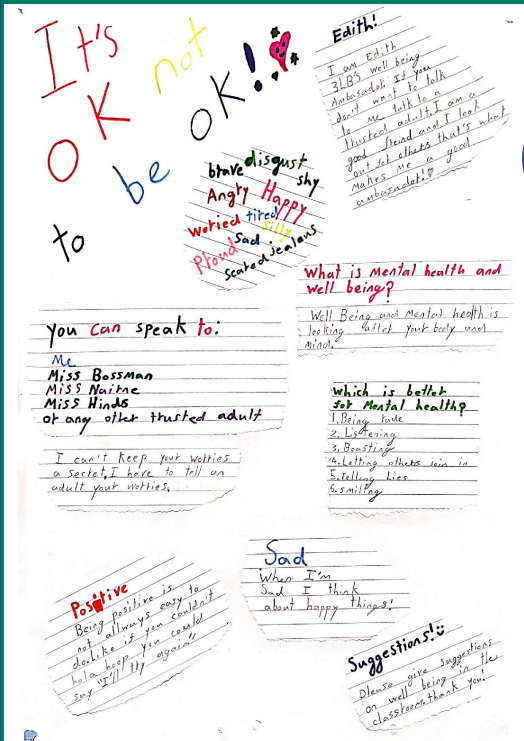 It's
OK not
to be OK!!
Edith!
I am Edith
3LB's well being
Ambasador. If you
don't want to talk
to me talk to a
trusted adult. I am a
good freind and I look
out for others that's what
makes me a good
ambasador!
brave disgust
shy
Angry Happy
woried tired silly
Proud Sad
scared jealous
What is mental health and
well being?
Well Being and Mental health is
looking after your body and
mind.
you can speak to:
Me
Miss Bossman
Miss Nairne
Miss Hinds
or any other trusted adult
I can't keep your worries
a secret, I have to tell an
adult your worries.
which is better
for Mental health?
1. Being rude
2. Listening
3. Boasting
4. Letting others join in
5. Telling Lies
6. smiling
Positive
Being positive is
not allways easy to
do. Like if you couldn't
hola hoop you could
say "I'll try again"
Sad
When I'm
Sad I think
about happy things!
Suggestions!
Please give suggestions
on well being in the
classroom. thank you!